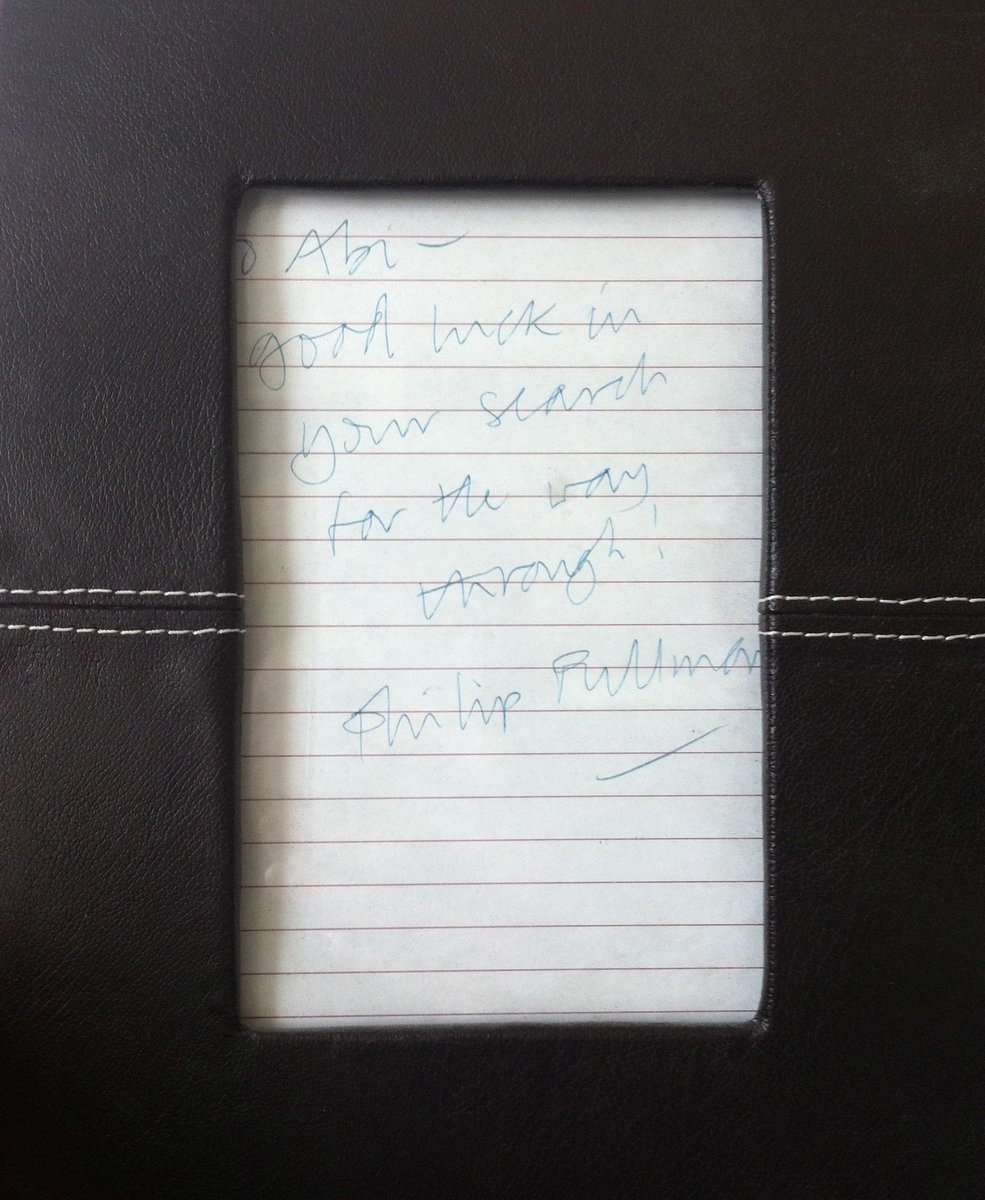 o Abi –
good luck in
your search
for the way
through!
Philip Pullman